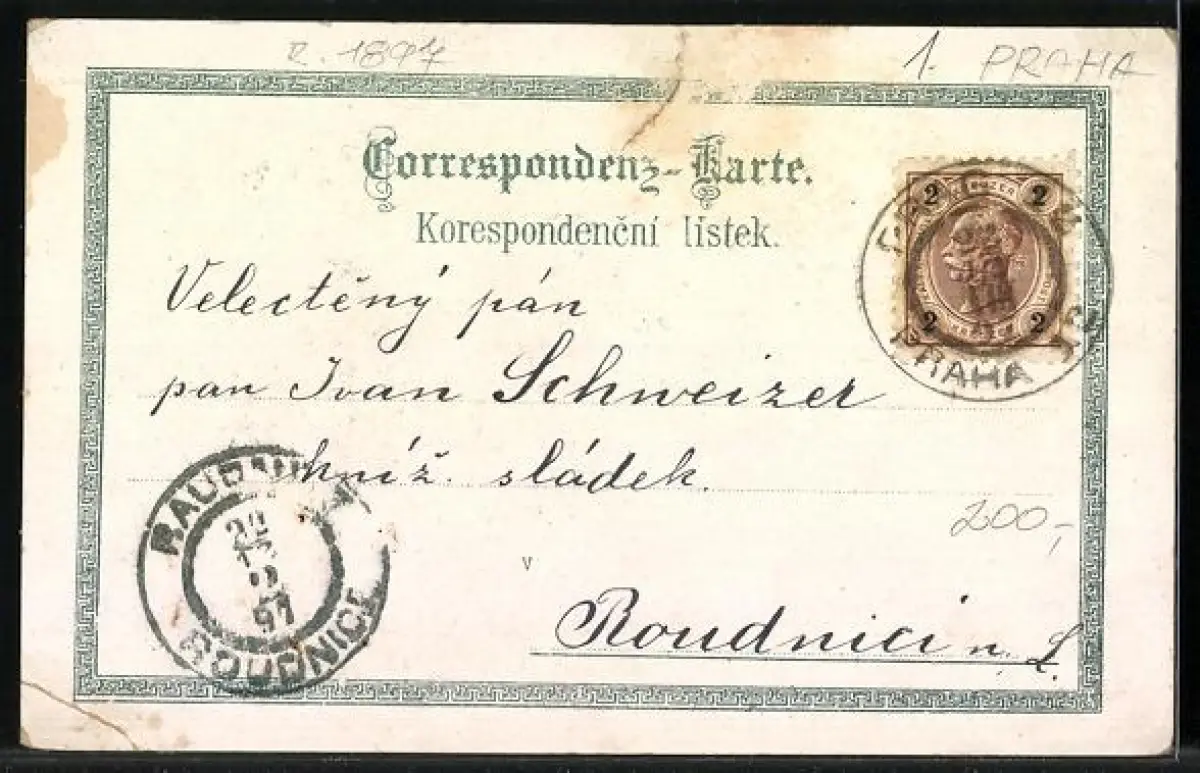 r. 1897
1. PRAHA
Correspondenz-Karte.
Korespondenční lístek.
2 KREUZER 2
2 2
PRAHA
Velectěný pán
pan Ivan Schweizer
kníž. sládek.
RAUDNITZ
97
ROUDNICE
200,-
v
Roudnici n. L.